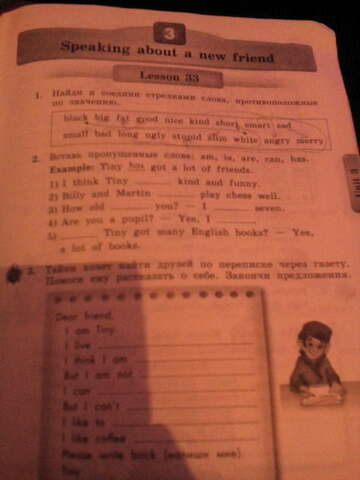 3
Speaking about a new friend
Lesson 33
1. Найди и соедини стрелками слова, противоположные
по значению.
black big fat good nice kind short smart sad
small bad long ugly stupid slim white angry merry
2. Вставь пропущенные слова: am, is, are, can, has.
Example: Tiny has got a lot of friends.
1) I think Tiny ______ kind and funny.
2) Billy and Martin ______ play chess well.
3) How old ______ you? — I ______ seven.
4) Are you a pupil? — Yes, I ______
5) ______ Tiny got many English books? — Yes,
a lot of books.
3. Тайни хочет найти друзей по переписке через газету.
Помоги ему рассказать о себе. Закончи предложения.
Dear friend,
I am Tiny.
I live
I think I am
But I am not
I can
But I can't
I like to
I like coffee
Please write back (напиши мне).
Tiny